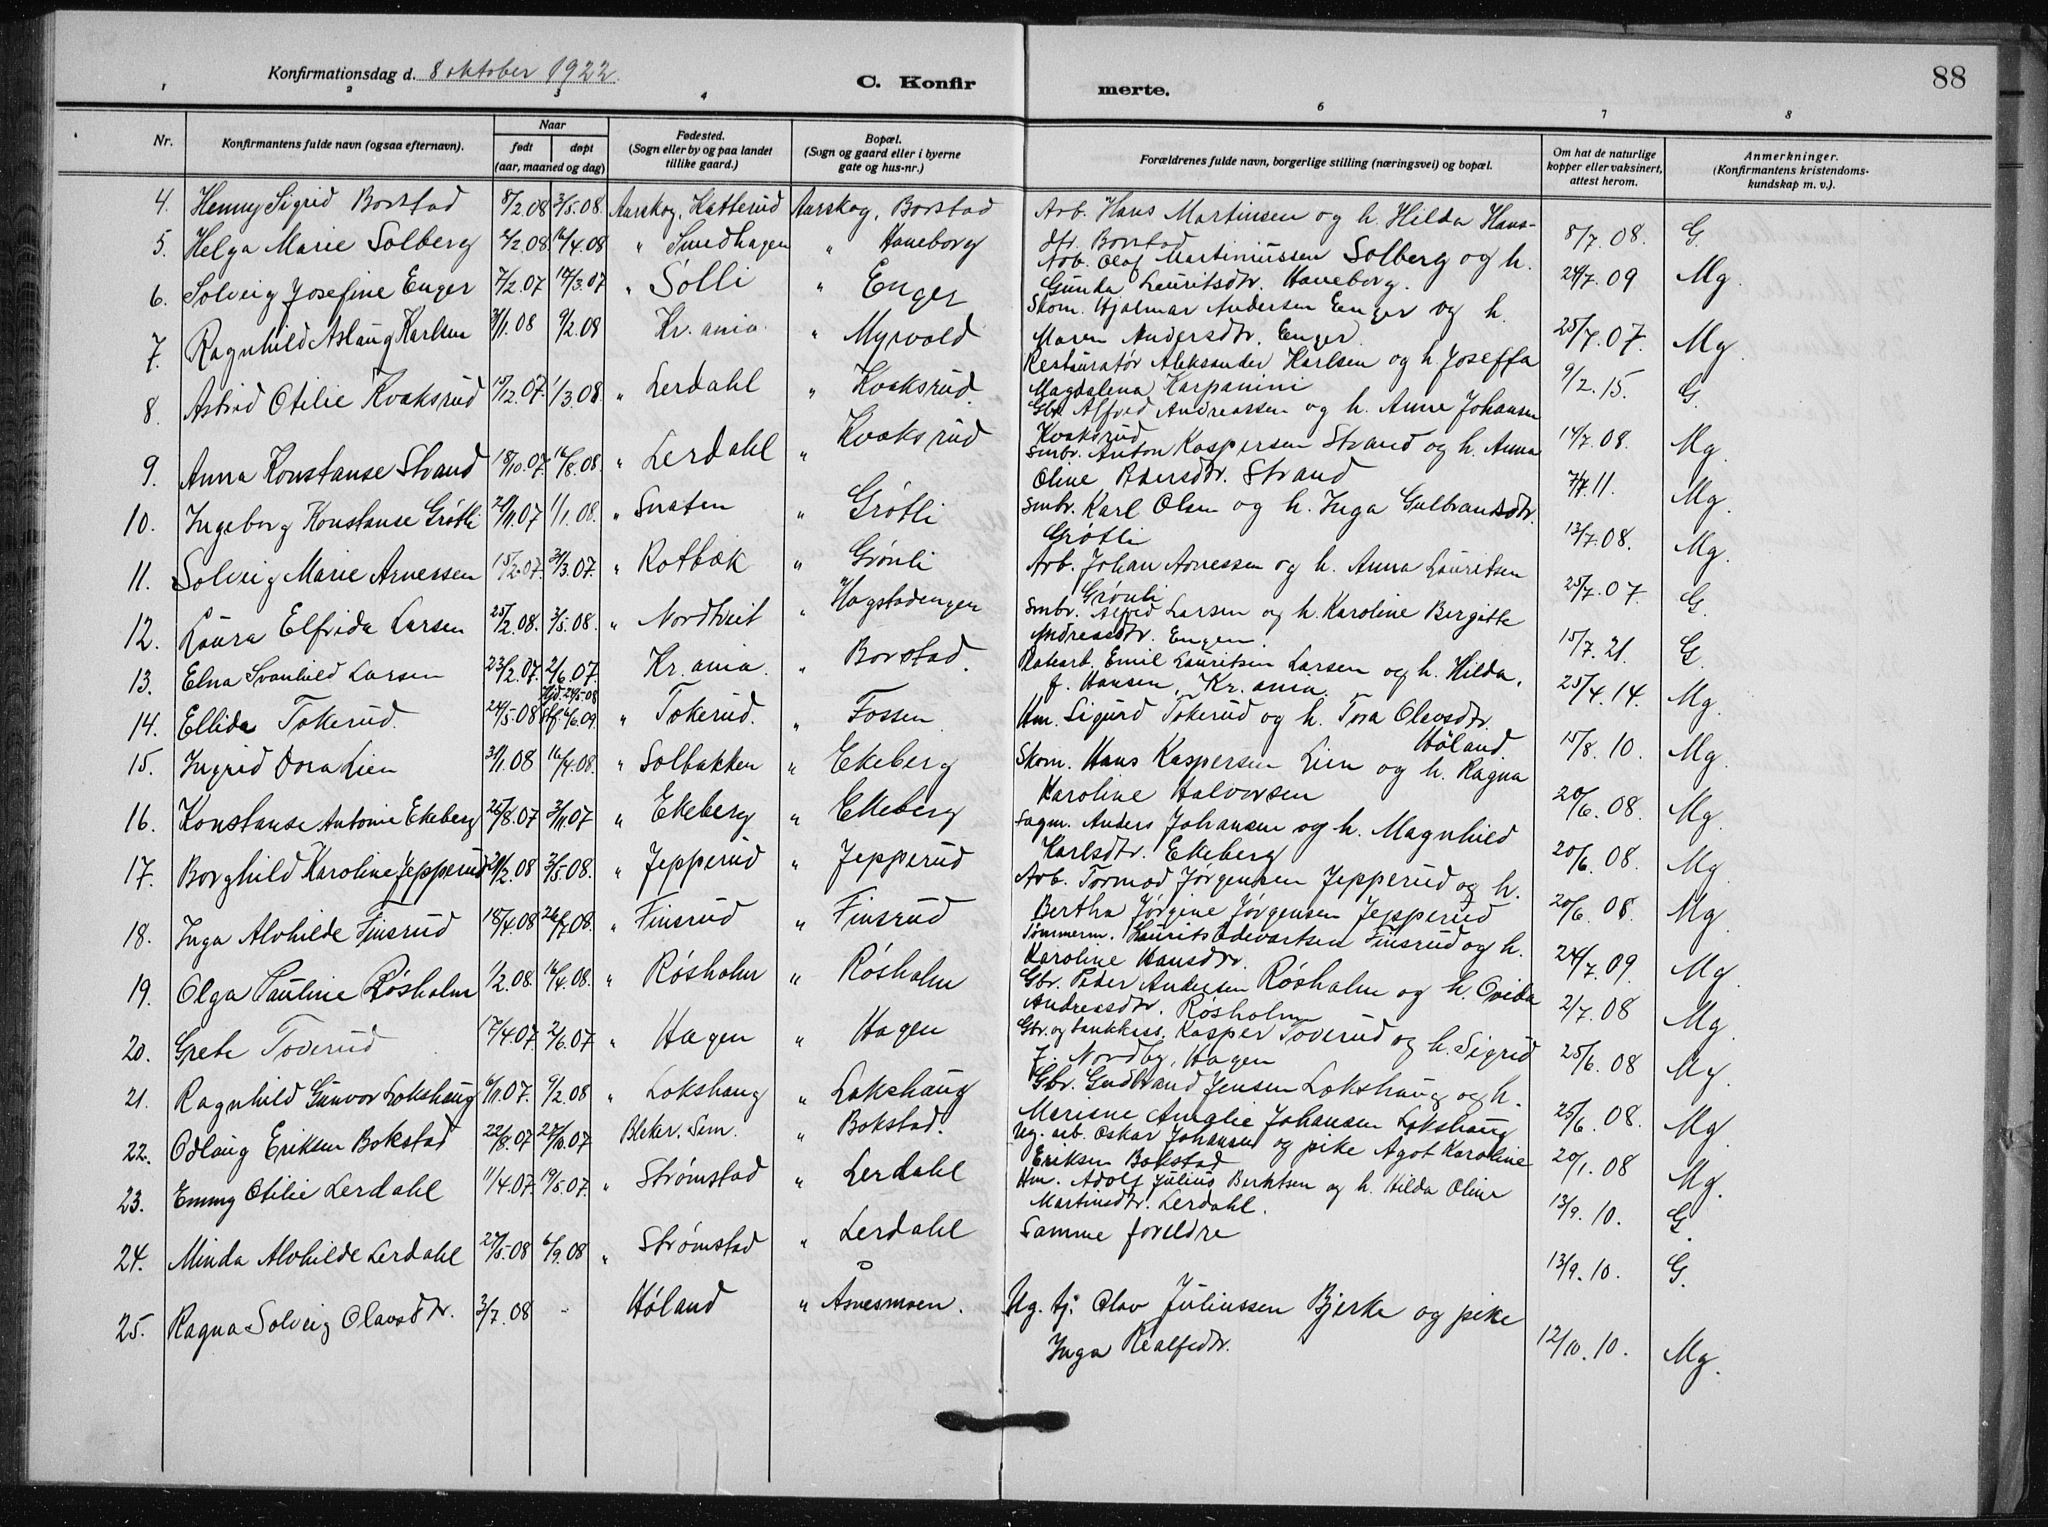 Konfirmationsdag d. 8 oktober 1922.
C. Konfirmerte.
88
1 2 3 4 6 7 8
Nr. Konfirmantens fulde navn (ogsaa efternavn). Naar født døpt (aar, maaned og dag) Fødested. (Sogn eller by og paa landet tillike gaard.) Bopæl. (Sogn og gaard eller i byerne gate og hus-nr.) Forældrenes fulde navn, borgerlige stilling (næringsvei) og bopæl. Om hat de naturlige kopper eller vaksinert, attest herom. Anmerkninger. (Konfirmantens kristendoms-kundskap m. v.).
4. Henny Sigrid Borstad 8/2.08 3/5.08. Aarskog, Katterud Aarskog, Borstad Arb. Hans Martinsen og h. Hilda Hans-
dtr. Borstad 8/7.08. G.
5. Helga Marie Solberg 2/2.08 16/4.08 " Smedhagen " Haneborg Arb. Olaf Martiniussen Solberg og h.
Gunda Lauritsdtr. Haneborg. 24/7.09 Mg.
6. Solveig Josefine Enger 7/2.07 17/3.07 " Solli " Enger Skom. Hjalmar Andersen Enger og h.
Maren Andersdtr. Enger. 25/7.07. Mg.
7. Ragnhild Aslaug Karlsen 31/1.08 9/2.08 Kr.ania. " Myrvold Restauratør Aleksander Karlsen og h. Joseffa
Magdalena Karpanini 9/2.15. G.
8. Astrid Otilie Kvaksrud 15/12.07. 1/3.08. " Lerdahl " Kvaksrud. Gbr. Alfred Andreassen og h. Anne Johansen
Kvaksrud 14/7.08. Mg.
9. Anna Konstanse Strand 18/10.07. 16/8.08. " Lerdahl " Kvaksrud Smbr. Anton Kaspersen Strand og h. Anna
Oline Pedersdtr. Strand 7/7.11. Mg.
10. Ingeborg Konstanse Grøtli 24/11.07 1/1.08. " Snaten " Grøtli Smbr. Karl Olsen og h. Inga Gulbrandsdtr.
Grøtli 13/7.08. Mg.
11. Solveig Marie Arnessen 15/2.07. 31/3.07. " Rotbæk " Grønli Arb. Johan Arnessen og h. Anna Lauritsen
Grønli 25/7.07. G.
12. Laura Elfrida Larsen 25/2.08. 3/5.08. " Nordtveit " Hogstadengen Smbr. Alfred Larsen og h. Karoline Bergitte
Andreasdtr. Engen. 15/7.21. G.
13. Elna Svanhild Larsen 23/2.07. 2/6.07. Kr.ania. " Borstad. Rørarb. Emil Lauritsen Larsen og h. Hilda,
f. Hansen, Kr.ania. 25/4.14. Mg.
14. Ellida Tokerud. 24/5.08 Hjd. 24/5-08 Stf. 6/6.09 " Tokerud. " Fossen Hm. Sigurd Tokerud og h. Tora Olavsdtr.
Høland 15/8.10. Mg.
15. Ingrid Dora Lien 31/1.08 16/4.08. " Solbakken " Ekeberg Skom. Hans Kaspersen Lien og h. Ragna
Karoline Halvorsen 20/6.08. Mg.
16. Konstanse Antonie Ekeberg 25/8.07. 3/11.07 " Ekeberg " Ekeberg Sagm. Anders Johansen og h. Magnhild
Karlsdtr. Ekeberg 20/6.08. Mg.
17. Borghild Karoline Jepperud 21/2.08 3/5.08. " Jepperud " Jepperud Arb. Tormod Jørgensen Jepperud og h.
Bertha Jørgine Jørgensen Jepperud 20/6.08. Mg.
18. Inga Alvhilde Finsrud 18/4.08 26/7.08. " Finsrud " Finsrud Tømmerm. Laurits Edvartsen Finsrud og h.
Karoline Hansdtr. 24/7.09. Mg.
19. Olga Pauline Røsholm 1/2.08. 16/4.08. " Røsholm " Røsholm Gbr. Peder Andersen Røsholm og h. Ovida
Andreasdtr. Røsholm 2/7.08 Mg.
20. Grete Toverud 17/4.07. 2/6.07 " Hagen " Hagen Gbr. og bankkass. Kasper Toverud og h. Sigrid
f. Nordby, Hagen 25/6.08 Mg.
21. Ragnhild Gunvor Lokshaug 6/11.07. 9/2.08 " Lokshaug " Lokshaug Gbr. Gudbrand Jensen Lokshaug og h.
Marisne Amalie Johansen Lokshaug 25/6.08. Mg.
22. Odlaug Eriksen Bokstad 22/8.07 20/10.07 Bleker. Sem. " Bokstad. Ug. arb. Oskar Johansen og pike Agot Karoline
Eriksen Bokstad 20/1.08 Mg.
23. Emmy Otilie Lerdahl 11/4.07. 19/5.07. " Strømstad " Lerdahl Hm. Adolf Julius Berntsen og h. Hilda Oline
Martinsdtr. Lerdahl. 13/9.10. G.
24. Minda Alvhilde Lerdahl 27/5.08 6/9.08 " Strømstad " Lerdahl Samme foreldre 13/9.10. G.
25. Ragna Solveig Olavsdtr. 3/7.08 - Høland " Åsnesmoen. Ug. tj. Olav Juliussen Bjerke og pike
Inga Realfsdtr. 12/10.10. Mg.